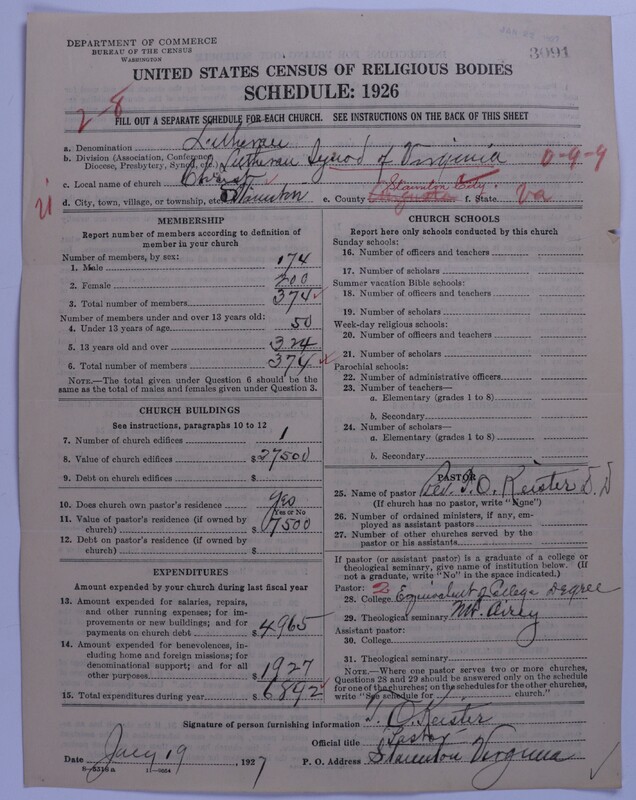 DEPARTMENT OF COMMERCE
BUREAU OF THE CENSUS
WASHINGTON
3091
UNITED STATES CENSUS OF RELIGIOUS BODIES
SCHEDULE: 1926
2-8
FILL OUT A SEPARATE SCHEDULE FOR EACH CHURCH. SEE INSTRUCTIONS ON THE BACK OF THIS SHEET
a. Denomination Lutheran
b. Division (Association, Conference, Diocese, Presbytery, Synod, etc.) Lutheran Synod of Virginia 0-9-9
c. Local name of church Christ
d. City, town, village, or township, etc. Staunton e. County Augusta Staunton City f. State Va
MEMBERSHIP
Report number of members according to definition of
member in your church
Number of members, by sex:
1. Male 174
2. Female 200
3. Total number of members 374
Number of members under and over 13 years old:
4. Under 13 years of age 50
5. 13 years old and over 324
6. Total number of members 374
NOTE.—The total given under Question 6 should be
same as the total of males and females given under Question 3.
CHURCH BUILDINGS
See instructions, paragraphs 10 to 12
7. Number of church edifices 1
8. Value of church edifices $27500
9. Debt on church edifices $
10. Does church own pastor's residence? Yes
Yes or No
11. Value of pastor's residence (if owned by
church) $7500
12. Debt on pastor's residence (if owned by
church) $
EXPENDITURES
Amount expended by your church during last fiscal year
13. Amount expended for salaries, repairs,
and other running expenses; for im-
provements or new buildings; and for
payments on church debt $4965
14. Amount expended for benevolences, in-
cluding home and foreign missions; for
denominational support; and for all
other purposes $1927
15. Total expenditures during year $6892
CHURCH SCHOOLS
Report here only schools conducted by this church
Sunday schools:
16. Number of officers and teachers
17. Number of scholars
Summer vacation Bible schools:
18. Number of officers and teachers
19. Number of scholars
Week-day religious schools:
20. Number of officers and teachers
21. Number of scholars
Parochial schools:
22. Number of administrative officers
23. Number of teachers—
a. Elementary (grades 1 to 8)
b. Secondary
24. Number of scholars—
a. Elementary (grades 1 to 8)
b. Secondary
PASTOR
25. Name of pastor Rev. T. O. Keister D. D
(If church has no pastor, write "None")
26. Number of ordained ministers, if any, em-
ployed as assistant pastors
27. Number of other churches served by the
pastor or his assistants
If pastor (or assistant pastor) is a graduate of a college or
theological seminary, give name of institution below. (If
not a graduate, write "No" in the space indicated.)
Pastor: 2
28. College Equivalent of College Degree
29. Theological seminary Mt. Airy
Assistant pastor:
30. College
31. Theological seminary
NOTE.—Where one pastor serves two or more churches,
Questions 28 and 29 should be answered only on the schedule
for one of the churches; on the schedules for the other churches,
write "See schedule for church."
Signature of person furnishing information T. O. Keister
Official title Pastor
Date Jany 19, 1927 P. O. Address Staunton Virginia
8-5316a 11-9654